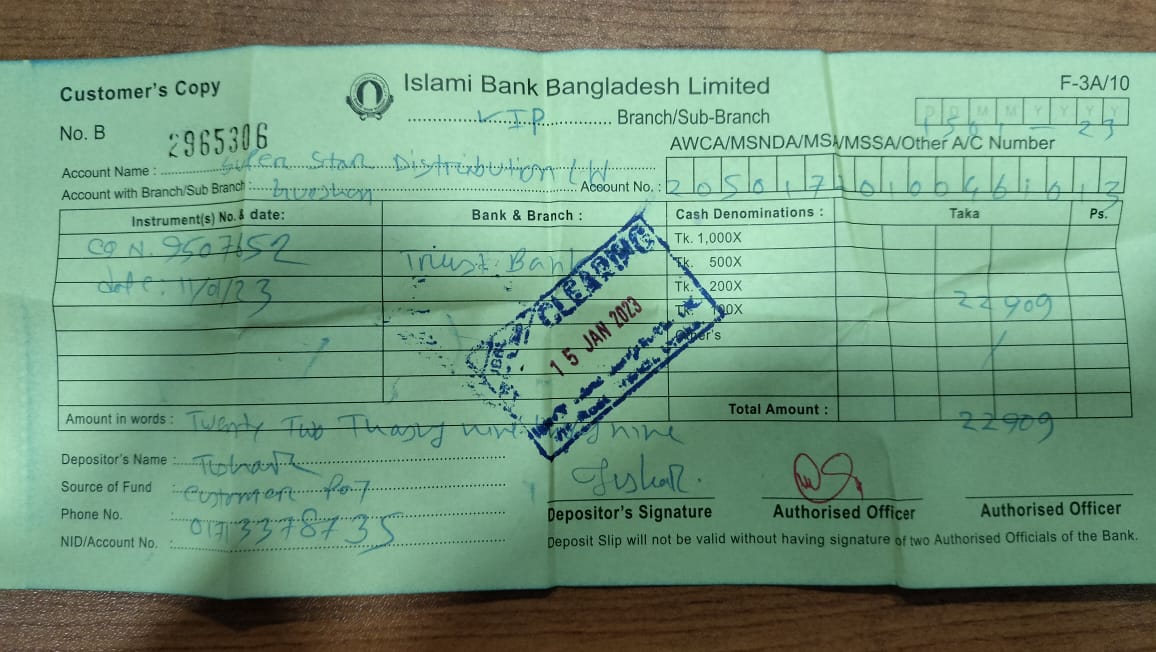 Customer's Copy
Islami Bank Bangladesh Limited
F-3A/10
VIP Branch/Sub-Branch
D D M M Y Y Y Y
No. B 2965306
AWCA/MSNDA/MSA/MSSA/Other A/C Number
Account Name : Super Star Distribution Ltd
Account with Branch/Sub Branch : Gulshan
Account No. : 20501770100461013
Instrument(s) No. & date: Bank & Branch : Cash Denominations : Taka Ps.
CQ N. 9507652 Trust Bank
date: 11/01/23
Tk. 1,000X
Tk. 500X
Tk. 200X
22909
CLEARING
15 JAN 2023
Total Amount : 22909
Amount in words : Twenty Two nine nine
Depositor's Name :
Source of Fund : Customer
Phone No. : 01713378735
NID/Account No. :
Depositor's Signature Authorised Officer Authorised Officer
Deposit Slip will not be valid without having signature of two Authorised Officials of the Bank.